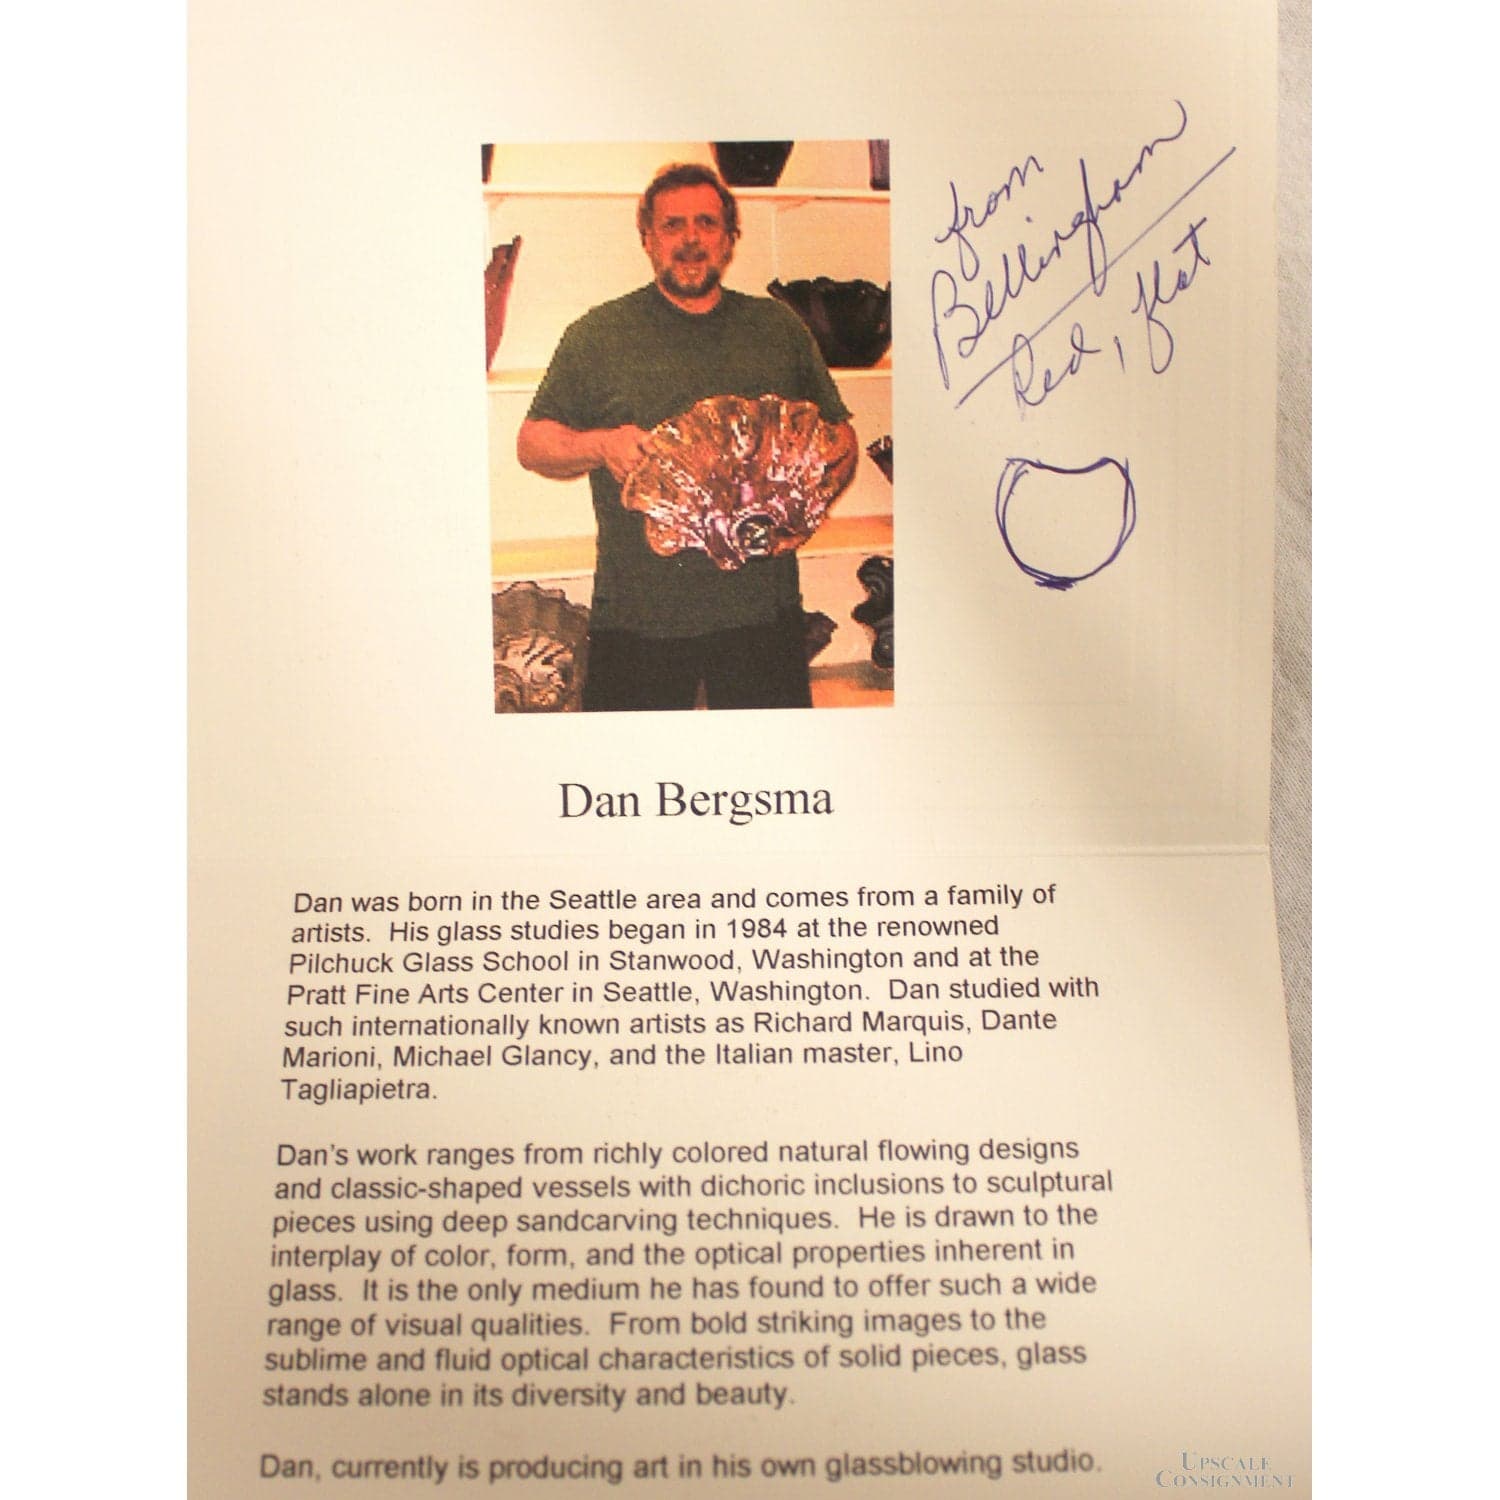 from
Bellingham
Red, flat
Dan Bergsma
Dan was born in the Seattle area and comes from a family of
artists.  His glass studies began in 1984 at the renowned
Pilchuck Glass School in Stanwood, Washington and at the
Pratt Fine Arts Center in Seattle, Washington.  Dan studied with
such internationally known artists as Richard Marquis, Dante
Marioni, Michael Glancy, and the Italian master, Lino
Tagliapietra.
Dan's work ranges from richly colored natural flowing designs
and classic-shaped vessels with dichoric inclusions to sculptural
pieces using deep sandcarving techniques.  He is drawn to the
interplay of color, form, and the optical properties inherent in
glass.  It is the only medium he has found to offer such a wide
range of visual qualities.  From bold striking images to the
sublime and fluid optical characteristics of solid pieces, glass
stands alone in its diversity and beauty.
Dan, currently is producing art in his own glassblowing studio.
UPSCALE
CONSIGNMENT